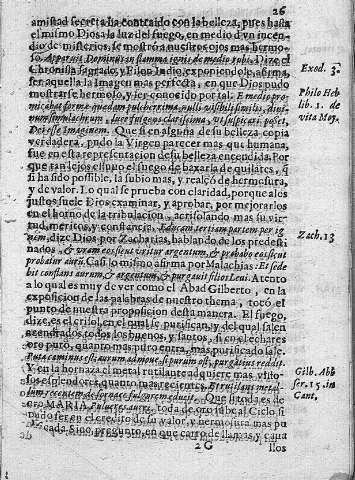 26
amistad secreta ha contraido con la belleza, pues hasta
el mismo Dios a la luz del fuego, en medio d vn incen-
dio de misterios, se mostró a nuestros ojos mas hermo-
so. Apparuit Dominus in flamma ignis de medio rubi. Dize el
Chronista sagrado, y Filon Iudio, exponiendolo, afirma,
ser aquella la imagen mas perfecta, en que Dios pudo
mostrarse hermoso, y ser conocido por tal. E medio pro-
micabat forma quædam pulcherrima, nulli visibili similis, divi-
num simulachrum, luce fulgens clarissima, vt suspicari posset,
Dei esse Imaginem. Que si en alguna de su belleza copia
verdadera, pudo la Virgen parecer mas que humana,
fue en esta representacion de su belleza encendida. Por
que tan lejos estuvo el fuego de baxarla de quilates, q̃
si ha sido posible, la subio mas, y realçó de hermosura,
y de valor. Lo qual se prueba con claridad, porque a los
justos suele Dios examinar, y aprobar, por mejorarlos
en el horno de la tribulacion, acrisolando mas su vir-
tud, meritos, y constancia. Educam tertiam partem per ig-
nem, dize Dios por Zacharias, hablando de los predesti-
nados, & vram eos sicut vritur argentum, & probabo eos sicut
probatur aurũ. Casi lo mismo afirma por Malachias. Et sede
bit conflans aurum, & argentum, & purgabit filios Levi. Atento
a lo qual es muy de ver como el Abad Gilberto, en la
exposicion de las palabras de nuestro thema, tocó el
punto de nuestra proposicion desta manera. El fuego,
dize, es el crisol, en el qual se purifican, y del qual salen
azendrados todos los buenos, y santos, si en el echares
oro puro, quanto mas puro entre, mas purificado sale.
Y en la hornaza el metal rutilante adquiere mas visto-
sos esplendores, quanto mas recientes. Et rutilans metal-
lum recentem de fornace fulgorem educit. Que si toda es de
oro MARIA
pudo ser en el credito de su valor, y hermosura mas pu
2G
llos
Exod. 3.
Philo Heb
lib. 1. de
vita Moy.
Zach. 13
Gilb. Abb
ser. 15. in
Cant.